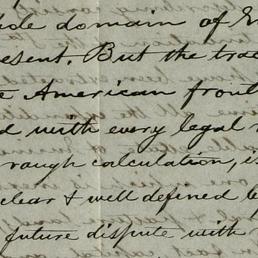 hole domain of En
esent. But the tra
e American front
d with every legal
rough calculation, is
clear & well defined b
future dispute with